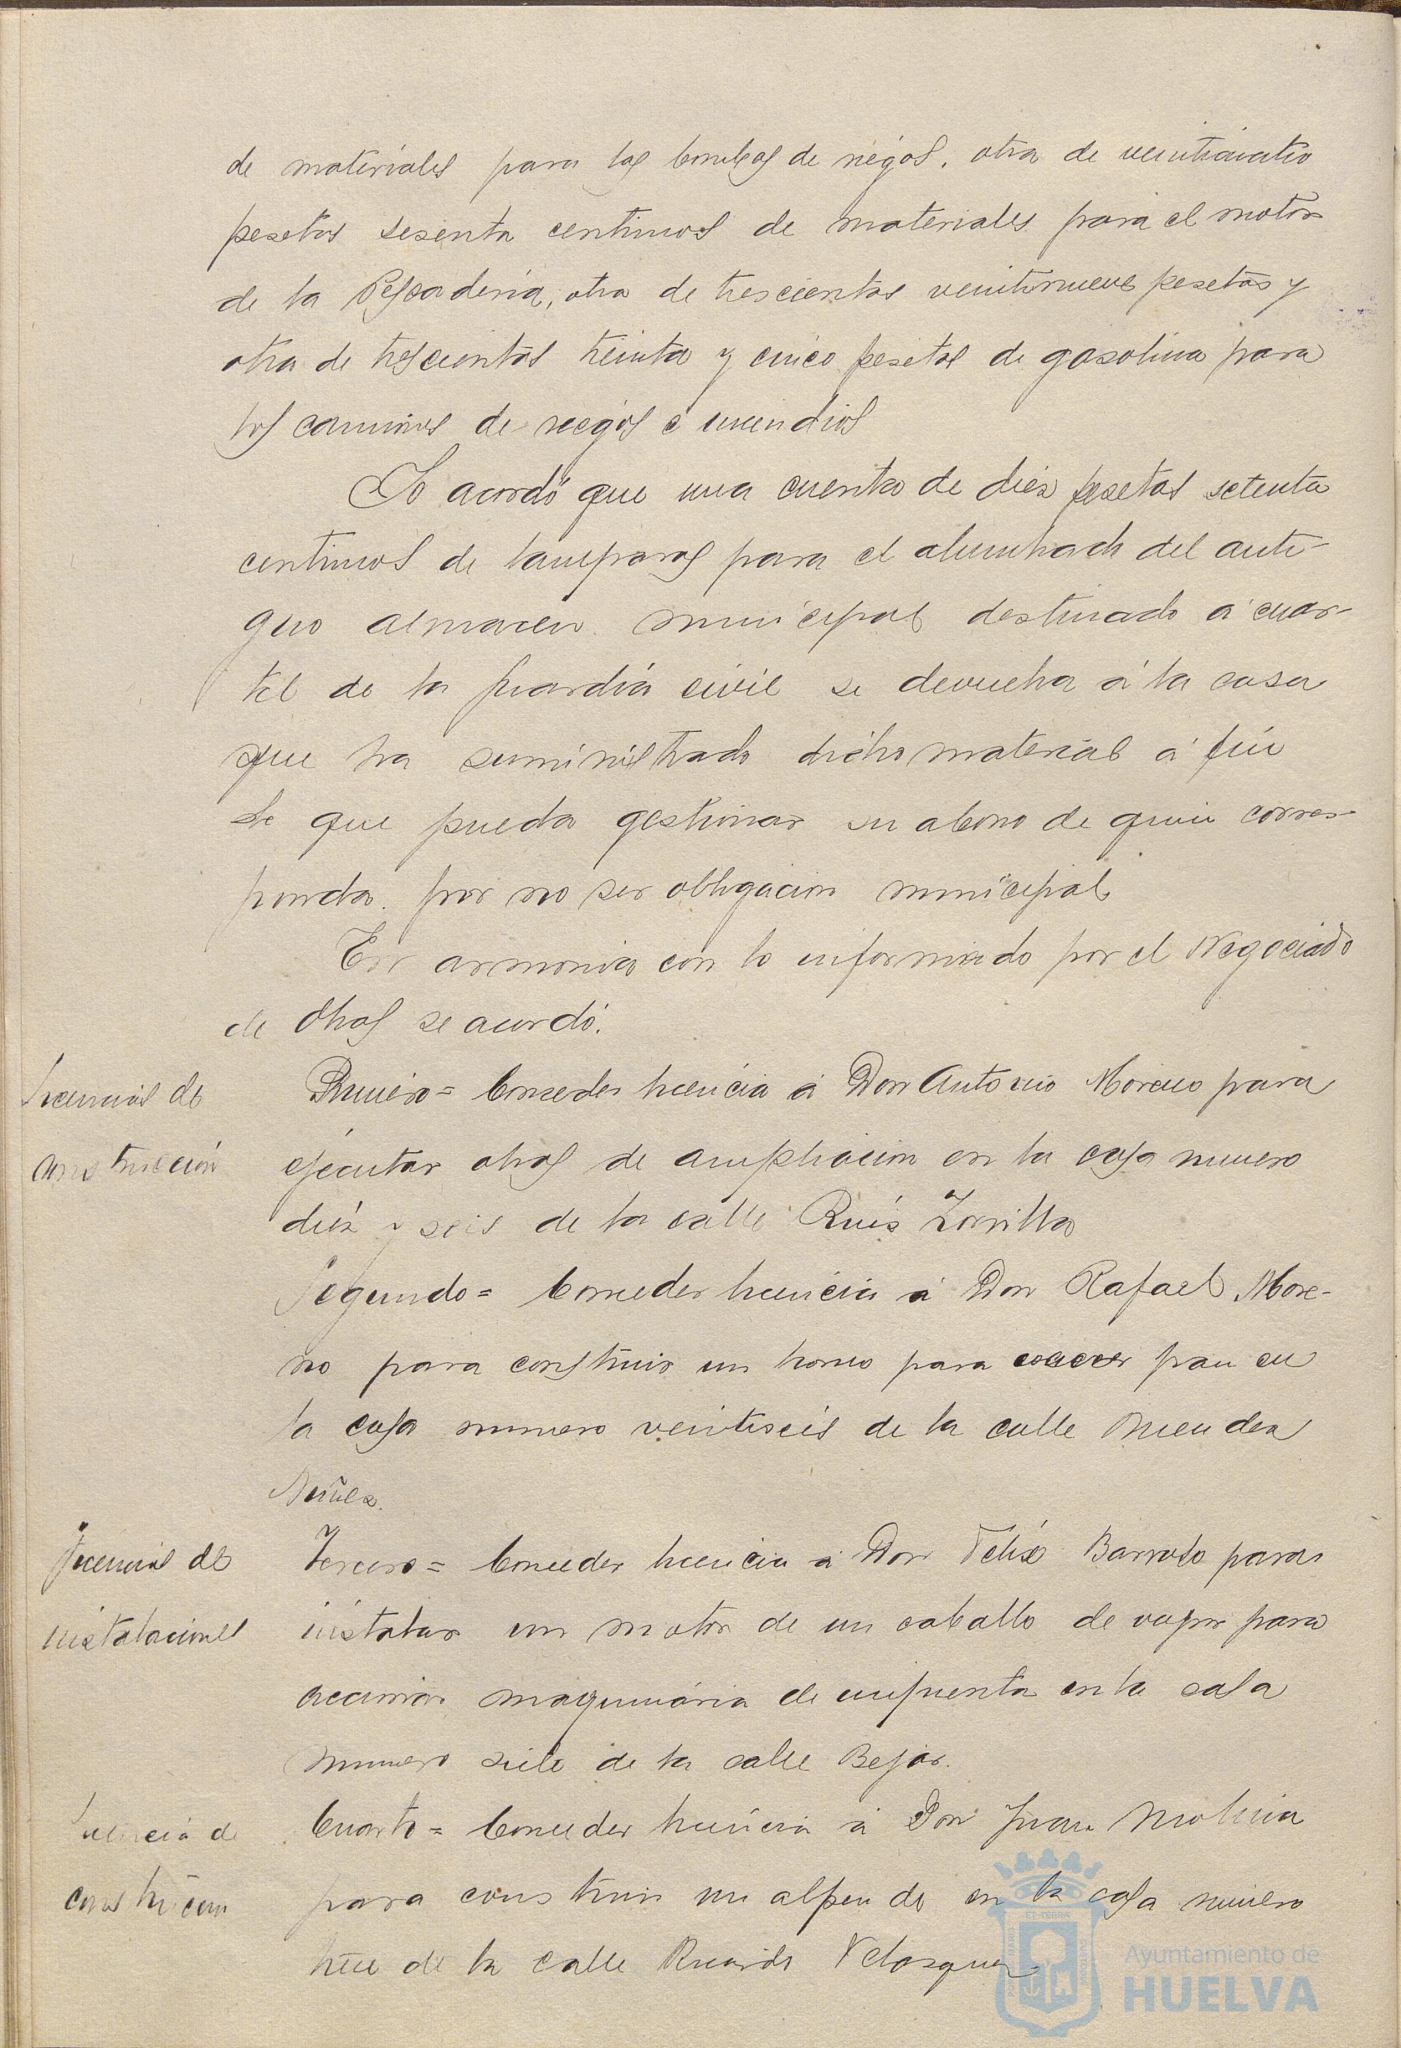 de materiales para las bombas de riegos, otra de veinticuatro
pesetas sesenta centimos de materiales para el motor
de la Pescaderia, otra de trescientas veintinueve pesetas y
otra de trescientas treinta y cinco pesetas de gasolina para
los camiones de riegos e incendios
Se acordó que una cuenta de diez pesetas setenta
centimos de lamparas para el alumbrado del anti-
guo almacen municipal destinado á cuar-
tel de la guardia civil se devuelva á la casa
que ha suministrado dicho material á fin
de que pueda gestionar su abono de quien corres-
ponda por no ser obligacion municipal
En armonia con lo informado por el Negociado
de Obras se acordó.
Licencias de
construccion
Primero = Conceder licencia á Don Antonio Moreno para
ejecutar obras de ampliacion en la casa numero
diez y seis de la calle Ruiz Zorrilla
Segundo = Conceder licencia á Don Rafael More-
no para construir un horno para cocer pan en
la casa numero veintiseis de la calle Mendez
Nuñez.
Licencias de
instalaciones
Tercero = Conceder licencia á Don Felix Barroso para
instalar un motor de un caballo de vapor para
accionar maquinaria de imprenta en la casa
numero siete de la calle Bejar.
Licencia de
construccion
Cuarto = Conceder licencia á Don Juan Molina
para construir un alpende en la casa numero
trece de la calle Ricardo Velazquez
Ayuntamiento de
HUELVA